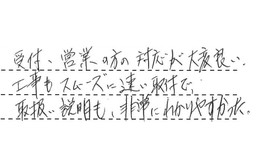 受付、営業の方の対応が大変良い。
工事もスムーズに速い取付で、
取扱い説明も、非常にわかりやすかった。